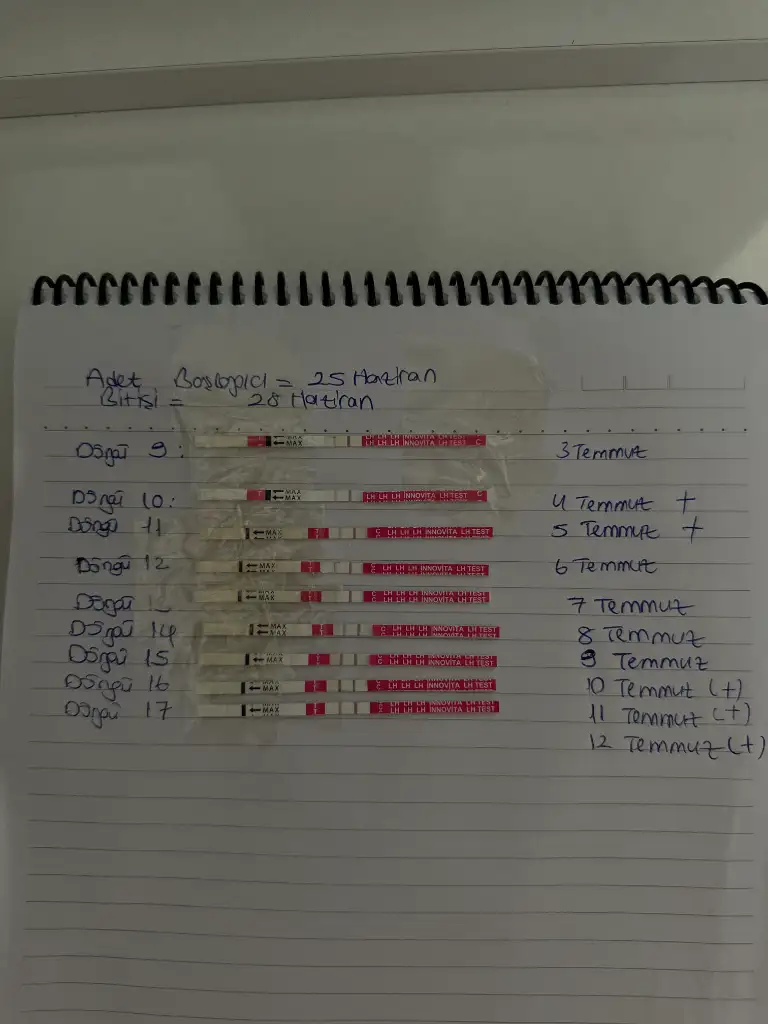 Adet Başlangıcı = 25 Haziran
Bitişi = 28 Haziran
Döngü 9 : MAX LH LH LH INNOVITA LH TEST C 3 Temmuz
Döngü 10 : T MAX LH LH LH INNOVITA LH TEST C 4 Temmuz +
Döngü 11 MAX T C LH LH LH INNOVITA LH TEST 5 Temmuz +
Döngü 12 MAX T C LH LH LH INNOVITA LH TEST 6 Temmuz
Döngü MAX T C LH LH LH INNOVITA LH TEST 7 Temmuz
Döngü 14 MAX T C LH LH LH INNOVITA LH TEST 8 Temmuz
Döngü 15 MAX T C LH LH LH INNOVITA LH TEST 9 Temmuz
Döngü 16 MAX T C LH LH LH INNOVITA LH TEST 10 Temmuz (+)
Döngü 17 MAX T C LH LH LH INNOVITA LH TEST 11 Temmuz (+)
12 Temmuz (+)